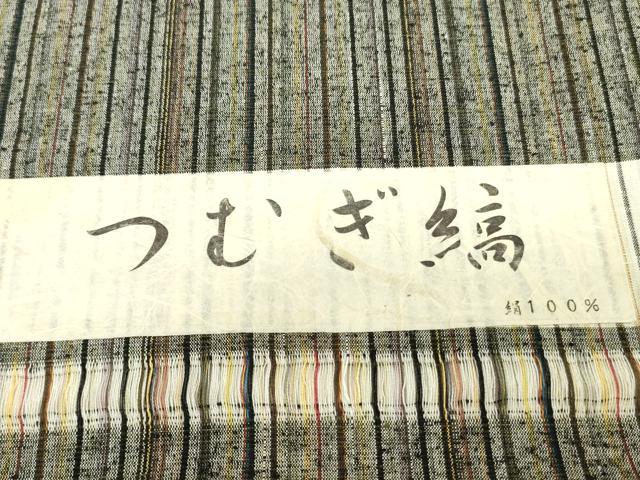 つむぎ縞
絹100%